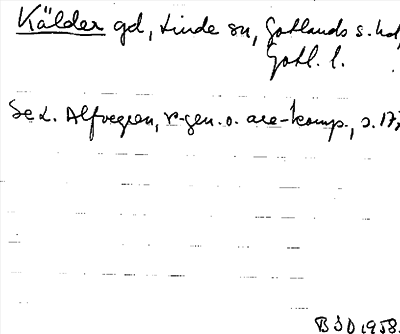 Kälder gd, Linde sn, Gotlands s. hd,
Gotl. l.
Se L. Alfvegren, r-gen. o. are-komp., s. 17
BSD 1958.